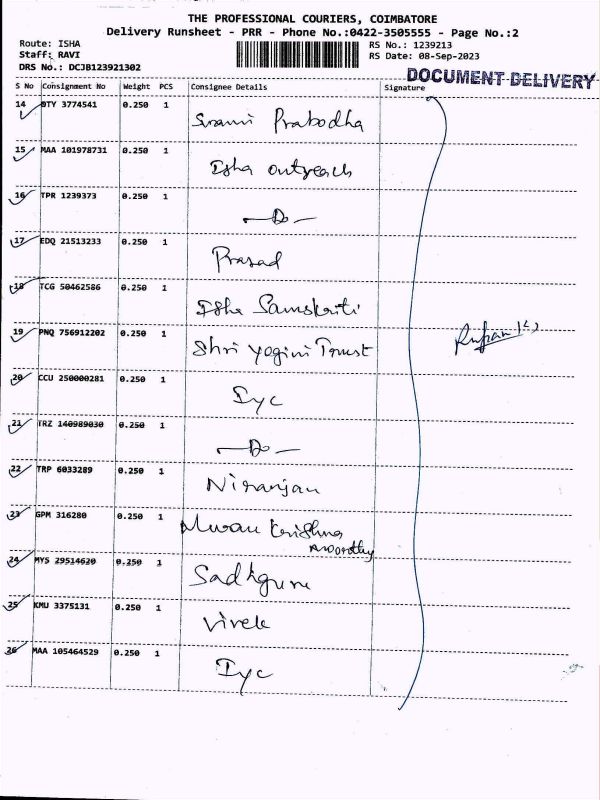 THE PROFESSIONAL COURIERS, COIMBATORE
Delivery Runsheet - PRR - Phone No.:0422-3505555 - Page No.:2
Route: ISHA
Staff: RAVI
DRS No.: DCJB123921302
RS No.: 1239213
RS Date: 08-Sep-2023
DOCUMENT DELIVERY
S No Consignment No Weight PCS Consignee Details Signature
14 DTY 3774541 0.250 1 Swami Prabodha
15 MAA 101978731 0.250 1 Isha outreach
16 TPR 1239373 0.250 1 —Do—
17 EDQ 21513233 0.250 1 Prasad
18 TCG 50462586 0.250 1 Isha Samskriti
19 PNQ 756912202 0.250 1 Shri Yogini Trust
20 CCU 250000281 0.250 1 Iyc
21 TRZ 140989030 0.250 1 —Do—
22 TRP 6033289 0.250 1 Niranjan
23 GPM 316280 0.250 1 Krishna
moorthy
24 MYS 29514620 0.250 1 Sadhguru
25 KMU 3375131 0.250 1 Vivek
26 MAA 105464529 0.250 1 Iyc